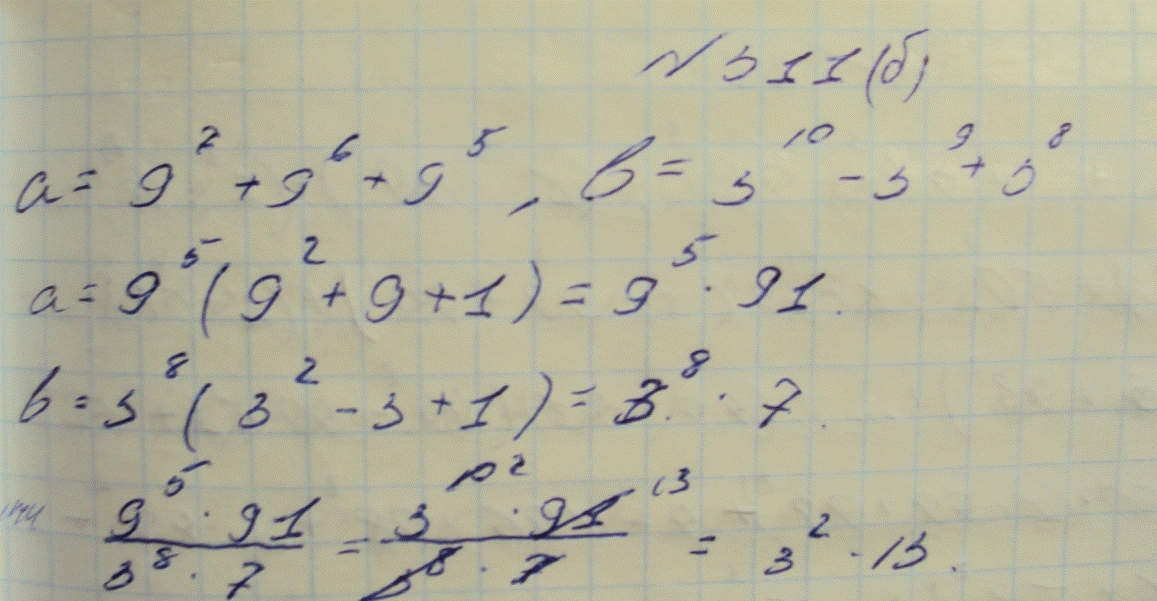 № 311 (б)
a = 9^7 + 9^6 + 9^5, b = 3^10 - 3^9 + 3^8
a = 9^5 (9^2 + 9 + 1) = 9^5 · 91.
b = 3^8 (3^2 - 3 + 1) = 3^8 · 7.
9^5 · 91 / 3^8 · 7 = 3^10 2 · 91 13 / 3^8 · 7 = 3^2 · 13.